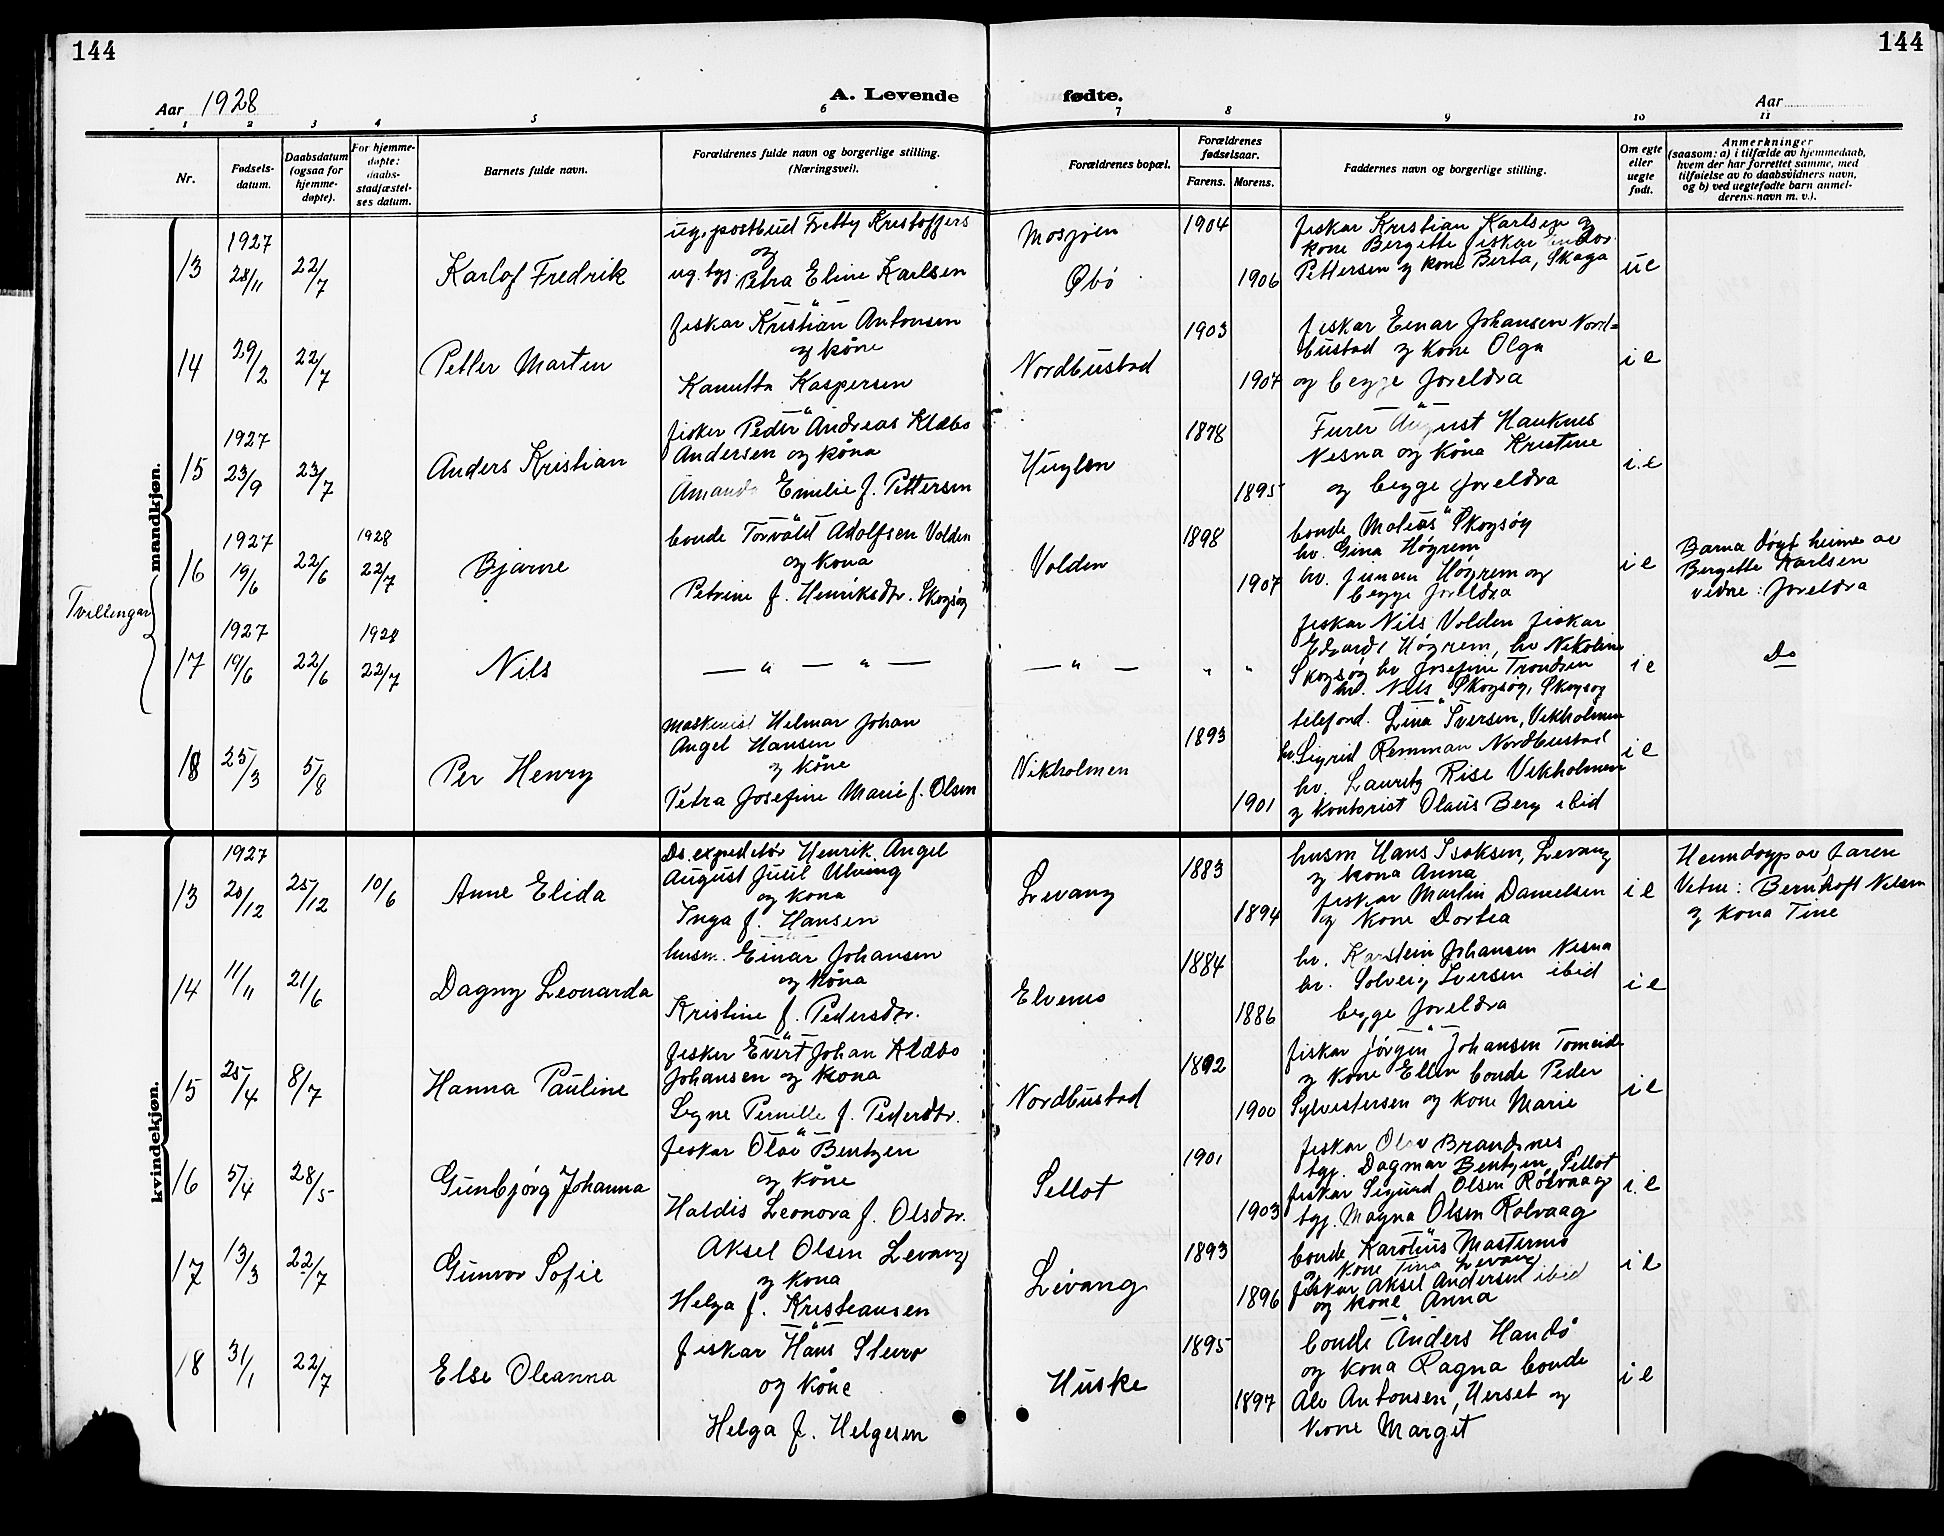 144
144
Aar 1928
A. Levende
fødte.
Aar
1 2 3 4 5 6 7 8 9 10 11
Nr.
Fødsels-
datum.
Daabsdatum
(ogsaa for
hjemme-
døpte).
For hjemme-
døpte:
daabs-
stadfæstel-
ses datum.
Barnets fulde navn.
Forældrenes fulde navn og borgerlige stilling.
(Næringsvei).
Forældrenes bopæl.
Forældrenes
fødselsaar.
Farens.
Morens.
Faddernes navn og borgerlige stilling.
Om egte
eller
uegte
født.
Anmerkninger
(saasom: a) i tilfælde av hjemmedaab,
hvem der har forrettet samme, med
tilføielse av to daabsvidners navn,
og b) ved uegtefødte barn anmel-
derens navn m. v.).
mandkjøn.
13
1927
28/11
22/7
Karlof Fredrik
ug. postbud Fretty Kristoffers
og
ug. tgj. Petra Eline Karlsen
Mosjøen
Øbø
1904
1906
fiskar Kristian Karlsen og
kone Bergette fiskar
Pettersen og kone Berta, Skaga
ue
14
29/2
22/7
Petter Martin
fiskar Kristian Antonsen
og kone
Kanutta Kaspersen
Nordbustad
1903
1907
fiskar Einar Johansen Nord-
bustad og kone Olga
og begge foreldra
ie
15
1927
23/9
23/7
Anders Kristian
fisker Peder Andreas Klæbo
Andersen og kona
Amanda Emilie f. Pettersen
Huglen
1878
1895
Furer August Hauknes
Nesna og kona Kristine
og begge foreldra
i.e
Tvillingar
16
1927
19/6
22/6
1928
22/7
Bjarne
bonde Torvald Adolfsen Volden
og kona
Petrine f. Henriksdtr. Skogsøy
Volden
1898
1907
bonde Matias Skogsøy
hv. Gina Høgrem
hv. Høgrem og
begge foreldra
ie
Barna døypt heime av
Bergette Karlsen
vidne: foreldra
17
1927
19/6
22/6
1928
22/7
Nils
— " — " —
— " —
" "
fiskar Nils Volden fiskar
Edvard Høgrem, hv Nikoline
Skogsøy hv Josefine Trondsen
hv. Nils Skogsøy, Skogsøy
ie
Do
18
25/3
5/8
Per Henry
maskinist Hilmar Johan
Angel Hansen
og kone
Petra Josefine Marie f. Olsen
Vikholmen
1893
1901
telefond. Lina Iversen, Vikholmen
hv. Sigrid Remman Nordbustad
hv. Lauritz Rise Vikholmen
og kontorist Olaus Berg ibid
ie
kvindekjøn.
13
1927
20/12
25/12
10/6
Anne Elida
Ds. expeditør Henrik Angel
August Juul Ulvang
og kona
Inga f. Hansen
Levang
1883
1894
husm Hans Isaksen, Levang
og kona Anna
fiskar Martin Danielsen
og kone Dortea
ie
Heimdøyp av faren
Vitne: Bernhoft Nilsen
og kona Tine
14
11/11
21/6
Dagny Leonarda
husm. Einar Johansen
og kona
Kristine f. Pedersdtr.
Elvenes
1884
1886
hv. Karstein Johansen Nesna
hv. Solveig Iversen ibid
begge foreldra
ie
15
25/4
8/7
Hanna Pauline
fisker Evert Johan Klæbo
Johansen og kona
Signe Pernille f. Pedersdtr.
Nordbustad
1892
1900
fiskar Jørgen Johansen Tomeide
og kone Ellen bonde Peder
Sylvestersen og kone Marie
ie
16
5/4
28/5
Gunbjørg Johanna
fiskar Olav Bentzen
og kone
Haldis Leonora f. Olsdtr.
Sellot
1901
1903
fiskar Olav Brandsnes
tgj. Dagmar Bentzen, Sellot
fiskar Sigurd Olsen Rølvaag
tgj. Magna Olsen Rølvaag
i.e
17
13/3
22/7
Gunvor Sofie
Aksel Olsen Levang
og kona
Helga f. Kristiansen
Levang
1893
1896
bonde Karolius Mastermo
og kone Tina Levang
fiskar Aksel Andersen ibid
og kone Anna
ie
18
31/1
22/7
Else Oleanna
fiskar Hans Sleuro
og kone
Helga f. Helgesen
Huske
1895
1897
bonde Anders Handø
og kona Ragna bonde
Alv Antonsen, Herset og
kone Margit
ie